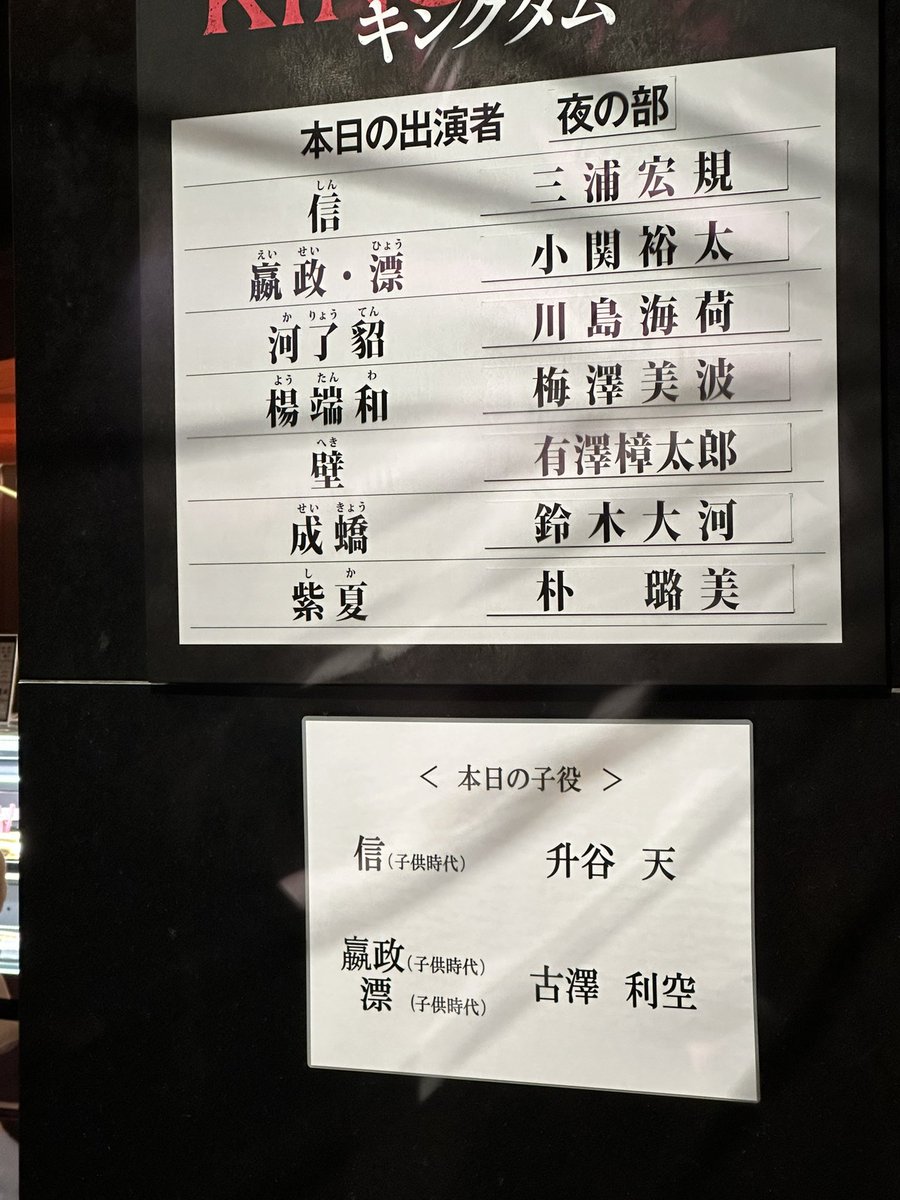 キングダム
本日の出演者 夜の部
しん
信 三浦宏規
えい せい ひょう
嬴政・漂 小関裕太
か りょう てん
河了貂 川島海荷
よう たん わ
楊端和 梅澤美波
へき
壁 有澤樟太郎
せい きょう
成蟜 鈴木大河
し か
紫夏 朴 璐美
＜ 本日の子役 ＞
信(子供時代) 升谷 天
嬴政(子供時代)
漂 (子供時代) 古澤 利空